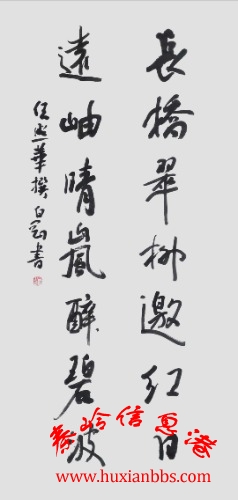 長橋翠柳邀紅日
遠岫晴嵐醉碧波
任延華撰 白雪書
秦岭信更港
www.huxianbbs.com